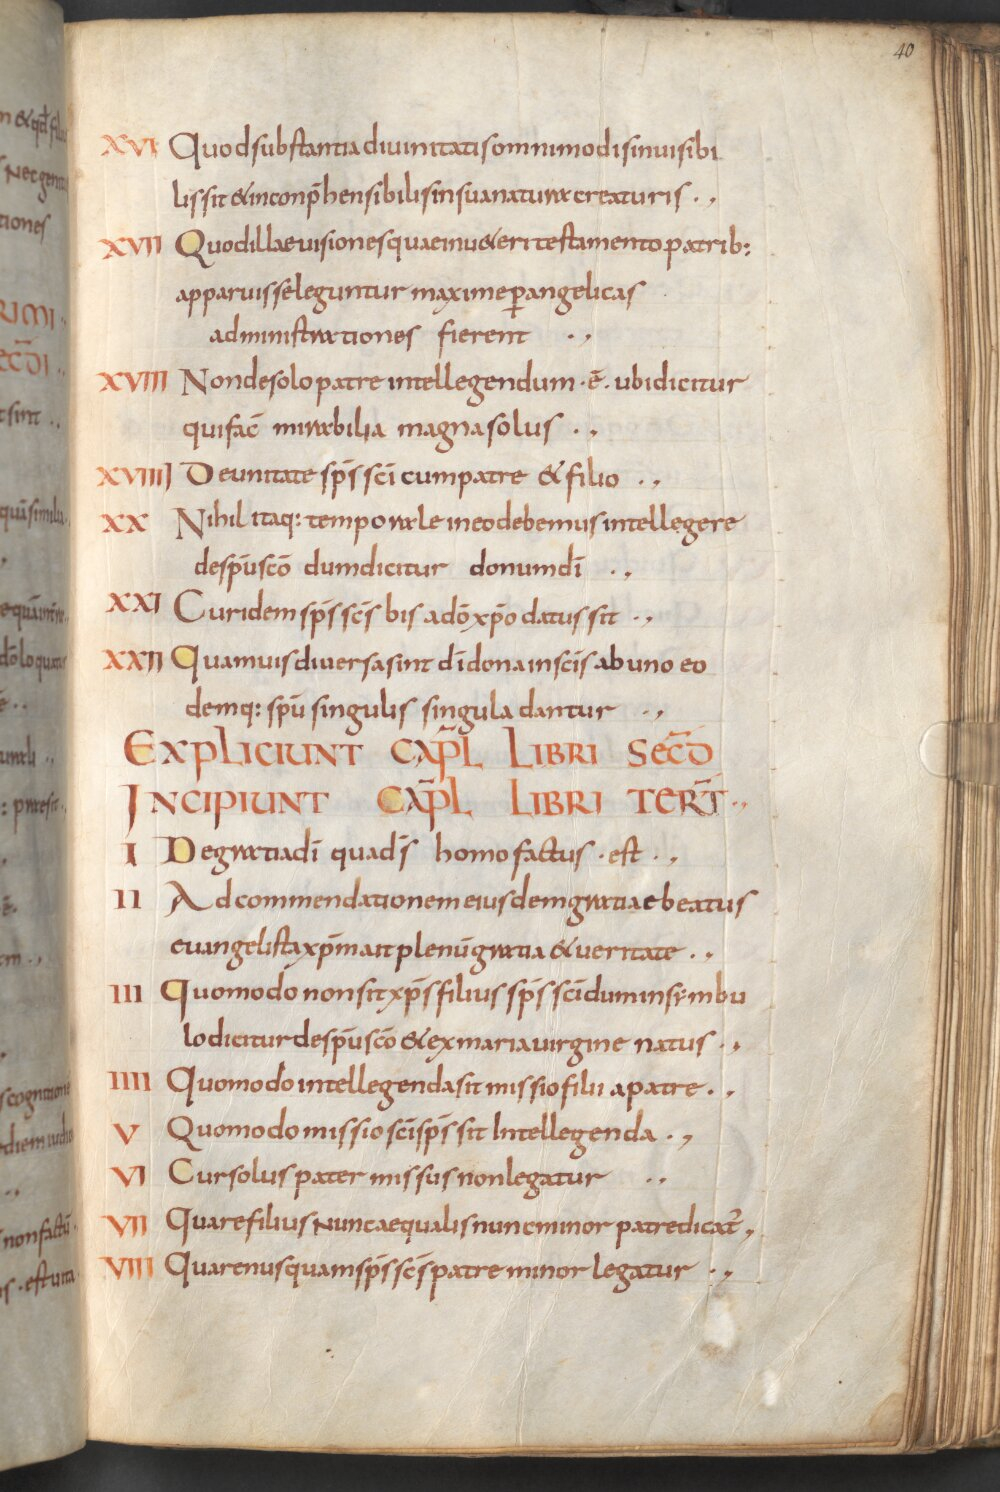 40
XVI Quod substantia divinitatis omnimodis invisibi
lis sit & inconp̄hensibilis in sua natura creaturis . ,
XVII Quod illae visiones quae in u&eri testamento patrib:
apparuisse leguntur maxime ꝑ angelicas
administrationes fierent . ,
XVIII Non de solo patre intellegendum · ē · ubi dicitur
qui fac̄ mirabilia magna solus . ,
XVIIII De unitate sp̄s sc̄i cum patre & filio . ,
XX Nihil itaq: temporale in eo debemus intellegere
de sp̄u sc̄o dum dicitur donum dī . ,
XXI Cur idem sp̄s sc̄s bis a dō xp̄o datus sit . ,
XXII Quamvis diversa sint dī dona in sc̄is ab uno eo
demq: sp̄u singulis singula dantur . ,
EXPLICIUNT CAP̄L LIBRI SEC̄D
INCIPIUNT CAP̄L LIBRI TERT̄ . .
I De gratia dī qua dī s̄ homo factus · est . ,
II Ad commendationem eiusdem gratiae beatus
evangelista xp̄m ait plenū gratia & veritate . ,
III Quomodo non sit xp̄s filius sp̄s sc̄i dum in symbu
lo dicitur de sp̄u sc̄o & ex maria virgine natus . ,
IIII Quomodo intellegenda sit missio filii a patre . ,
V Quomodo missio sc̄i sp̄s sit Intellegenda . ,
VI Cur solus pater missus non legatur . ,
VII Quare filius Nunc aequalis nunc minor patre dicat̄ . ,
VIII Quare nusquam sp̄s sc̄s patre minor legatur . ,